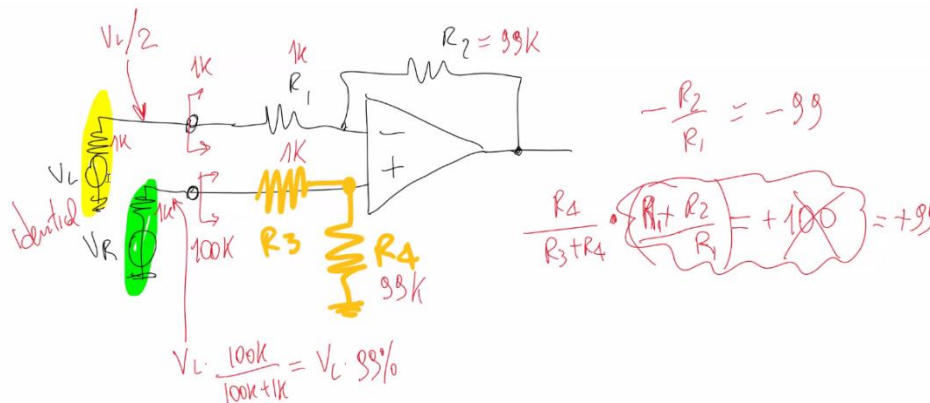 VL/2
1K
1K
R1
R2 = 99K
- R2/R1 = -99
1K
VL
1K
-
+
Identical
VR
1K
100K
R3
R4
99K
R4/(R3+R4) · (R1+R2)/R1 = +100 = +99
VL · 100K/(100K+1K) = VL · 99%